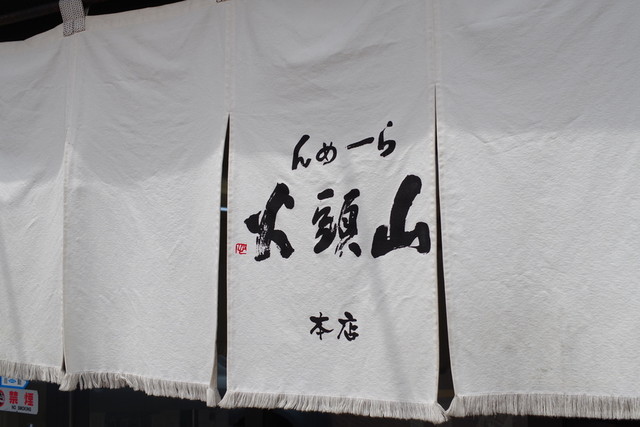 らーめん
山頭火
本店
禁煙
NO SMOKING